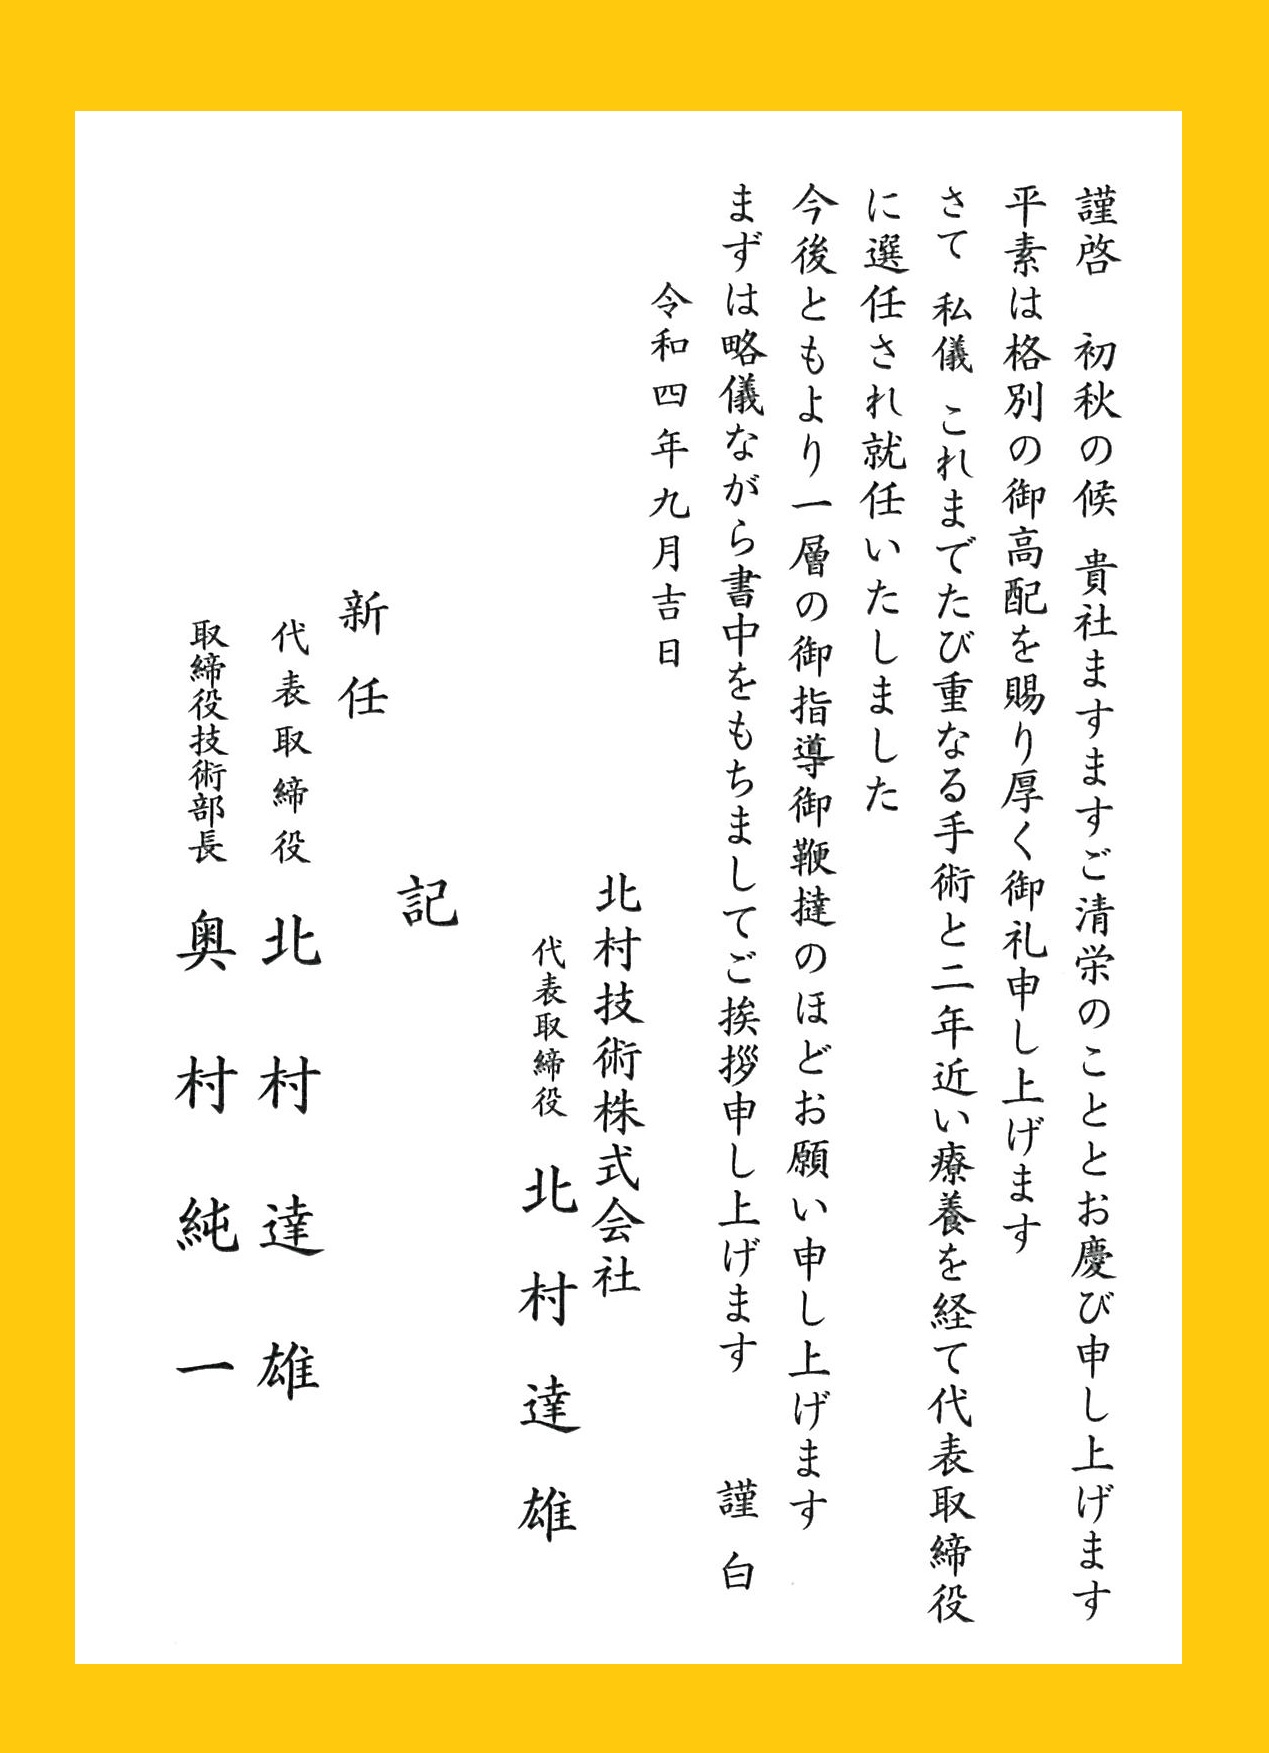 謹啓　初秋の候 貴社ますますご清栄のこととお慶び申し上げます
平素は格別の御高配を賜り厚く御礼申し上げます
さて 私儀 これまでたび重なる手術と二年近い療養を経て代表取締役
に選任され就任いたしました
今後ともより一層の御指導御鞭撻のほどお願い申し上げます
まずは略儀ながら書中をもちましてご挨拶申し上げます　謹白
令和四年九月吉日
北村技術株式会社
代表取締役 北村達雄
記
新任
代表取締役 北村達雄
取締役技術部長 奥村純一